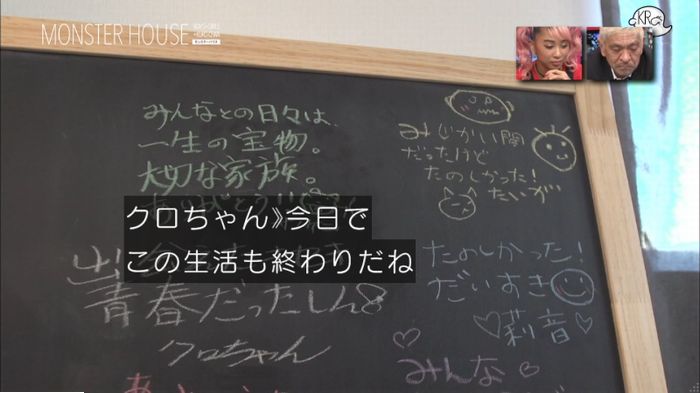 MONSTER HOUSE
KR
みんなとの日々は、
一生の宝物。
大切な家族。
みじかい間
だったけど
たのしかった!
たいが
クロちゃん》今日で
この生活も終わりだね
青春だったしん
クロちゃん
たのしかった!
だいすき
♡莉音♡
みんな